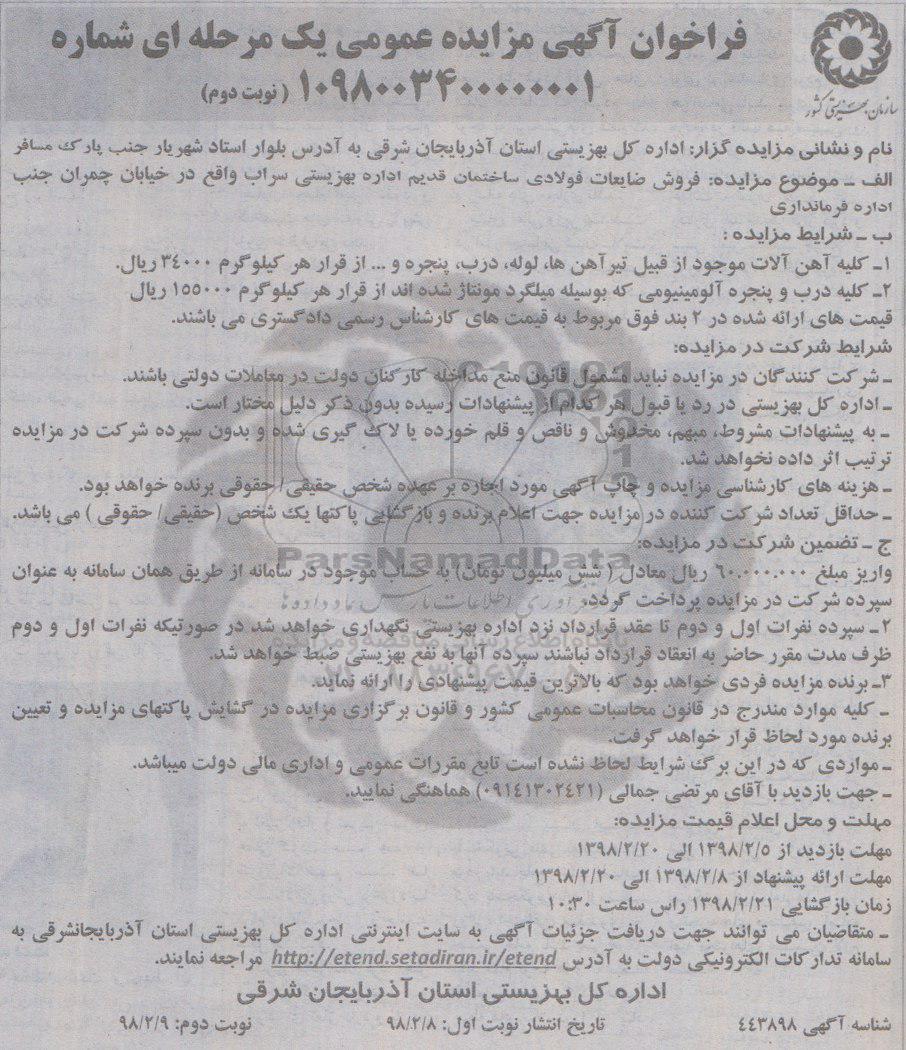 فراخوان آگهی مزایده عمومی یک مرحله ای شماره
۱۰۹۸۰۰۳۴۰۰۰۰۰۰۰۰۱ (نوبت دوم)
سازمان بهزیستی کشور
نام و نشانی مزایده گزار: اداره کل بهزیستی استان آذربایجان شرقی به آدرس بلوار استاد شهریار جنب پارک مسافر
الف ـ موضوع مزایده: فروش ضایعات فولادی ساختمان قدیم اداره بهزیستی سراب واقع در خیابان چمران جنب
اداره فرمانداری
ب ـ شرایط مزایده :
۱ـ کلیه آهن آلات موجود از قبیل تیرآهن ها، لوله، درب، پنجره و ... از قرار هر کیلوگرم ۳۴۰۰۰ ریال.
۲ـ کلیه درب و پنجره آلومینیومی که بوسیله میلگرد مونتاژ شده اند از قرار هر کیلوگرم ۱۵۵۰۰۰ ریال
قیمت های ارائه شده در ۲ بند فوق مربوط به قیمت های کارشناس رسمی دادگستری می باشند.
شرایط شرکت در مزایده:
ـ شرکت کنندگان در مزایده نباید مشمول قانون منع مداخله کارکنان دولت در معاملات دولتی باشند.
ـ اداره کل بهزیستی در رد یا قبول هر کدام از پیشنهادات رسیده بدون ذکر دلیل مختار است.
ـ به پیشنهادات مشروط، مبهم، مخدوش و ناقص و قلم خورده یا لاک گیری شده و بدون سپرده شرکت در مزایده
ترتیب اثر داده نخواهد شد.
ـ هزینه های کارشناسی مزایده و چاپ آگهی مورد اجاره بر عهده شخص حقیقی/ حقوقی برنده خواهد بود.
ـ حداقل تعداد شرکت کننده در مزایده جهت اعلام برنده و بازگشایی پاکتها یک شخص (حقیقی/ حقوقی ) می باشد.
ج ـ تضمین شرکت در مزایده:
ParsNamadData
واریز مبلغ ۶۰.۰۰۰.۰۰۰ ریال معادل ( شش میلیون تومان) به حساب موجود در سامانه از طریق همان سامانه به عنوان
سپرده شرکت در مزایده پرداخت گردد.
۲ـ سپرده نفرات اول و دوم تا عقد قرارداد نزد اداره بهزیستی نگهداری خواهد شد در صورتیکه نفرات اول و دوم
ظرف مدت مقرر حاضر به انعقاد قرارداد نباشند سپرده آنها به نفع بهزیستی ضبط خواهد شد.
۳ـ برنده مزایده فردی خواهد بود که بالاترین قیمت پیشنهادی را ارائه نماید.
ـ کلیه موارد مندرج در قانون محاسبات عمومی کشور و قانون برگزاری مزایده در گشایش پاکتهای مزایده و تعیین
برنده مورد لحاظ قرار خواهد گرفت.
ـ مواردی که در این برگ شرایط لحاظ نشده است تابع مقررات عمومی و اداری مالی دولت میباشد.
ـ جهت بازدید با آقای مرتضی جمالی (۰۹۱۴۱۳۰۲۴۲۱) هماهنگی نمایید.
مهلت و محل اعلام قیمت مزایده:
مهلت بازدید از ۱۳۹۸/۲/۵ الی ۱۳۹۸/۲/۲۰
مهلت ارائه پیشنهاد از ۱۳۹۸/۲/۸ الی ۱۳۹۸/۲/۲۰
زمان بازگشایی ۱۳۹۸/۲/۲۱ راس ساعت ۱۰:۳۰
ـ متقاضیان می توانند جهت دریافت جزئیات آگهی به سایت اینترنتی اداره کل بهزیستی استان آذربایجانشرقی به
سامانه تدارکات الکترونیکی دولت به آدرس http://etend.setadiran.ir/etend مراجعه نمایند.
اداره کل بهزیستی استان آذربایجان شرقی
شناسه آگهی ۴۴۳۸۹۸ تاریخ انتشار نوبت اول: ۹۸/۲/۸ نوبت دوم: ۹۸/۲/۹